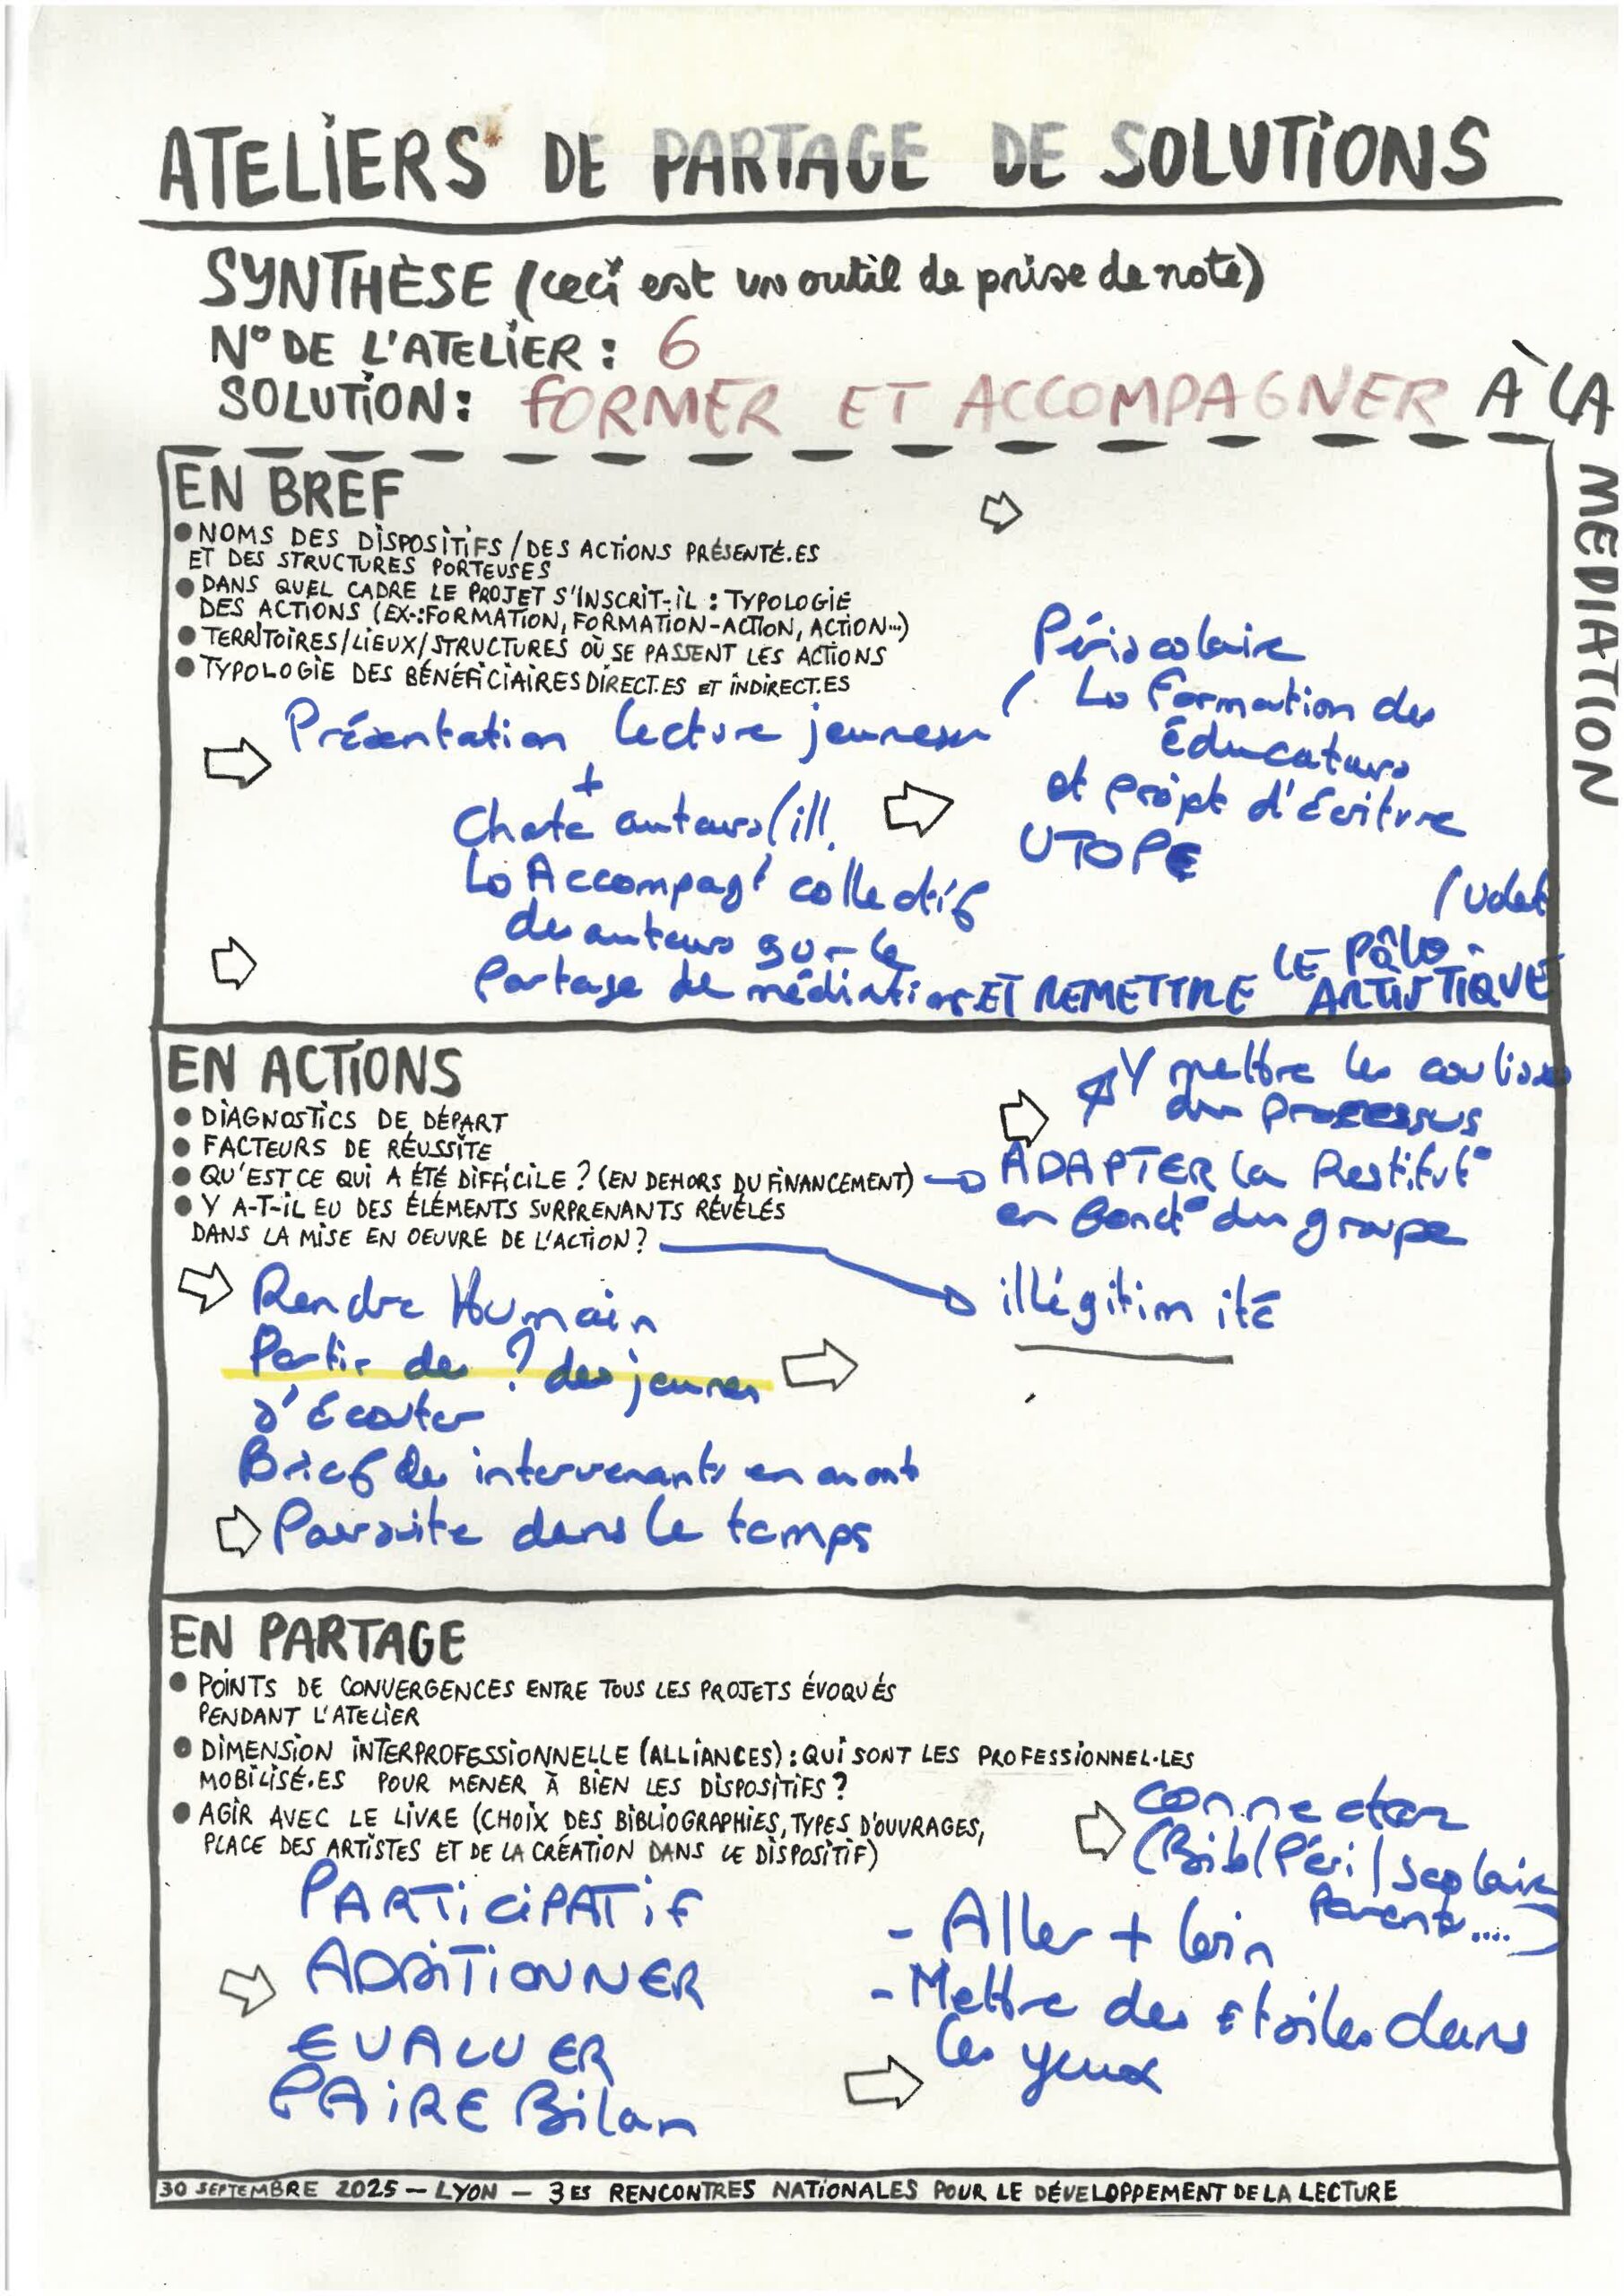 ATELIERS DE PARTAGE DE SOLUTIONS
SYNTHÈSE (ceci est un outil de prise de note)
N° DE L'ATELIER : 6
SOLUTION : FORMER ET ACCOMPAGNER À LA
MEDIATION
EN BREF
● NOMS DES DISPOSITIFS / DES ACTIONS PRÉSENTÉ.ES
ET DES STRUCTURES PORTEUSES
● DANS QUEL CADRE LE PROJET S'INSCRIT-IL : TYPOLOGIE
DES ACTIONS (EX.:FORMATION, FORMATION-ACTION, ACTION...)
● TERRITOIRES/LIEUX/STRUCTURES OÙ SE PASSENT LES ACTIONS
● TYPOLOGIE DES BÉNÉFICIAIRES DIRECT.ES ET INDIRECT.ES
Présentation lecture jeunesse
+
Charte auteurs/ill.
Accompagt collectif
des auteurs sur le
Partage de médiation ET REMETTRE LE PÔLE
ARTISTIQUE
(volet
Périscolaire
Formation des
éducateurs
et projet d'écriture
UTOPE
EN ACTIONS
● DIAGNOSTICS DE DÉPART
● FACTEURS DE RÉUSSITE
● QU'EST CE QUI A ÉTÉ DIFFICILE ? (EN DEHORS DU FINANCEMENT)
● Y A-T-IL EU DES ÉLÉMENTS SURPRENANTS RÉVÉLÉS
DANS LA MISE EN OEUVRE DE L'ACTION ?
Y mettre les coulisses
du processus
ADAPTER la Restitut°
en fonct° du groupe
illégitimité
Rendre Humain
Partir des ? des jeunes
d'écouter
Brief des intervenants en amont
Poursuite dans le temps
EN PARTAGE
● POINTS DE CONVERGENCES ENTRE TOUS LES PROJETS ÉVOQUÉS
PENDANT L'ATELIER
● DIMENSION INTERPROFESSIONNELLE (ALLIANCES) : QUI SONT LES PROFESSIONNEL.LES
MOBILISÉ.ES POUR MENER À BIEN LES DISPOSITIFS ?
● AGIR AVEC LE LIVRE (CHOIX DES BIBLIOGRAPHIES, TYPES D'OUVRAGES,
PLACE DES ARTISTES ET DE LA CRÉATION DANS LE DISPOSITIF)
connecter
(Bib/Péri/scolaire
Parents....)
PARTICIPATIF
ADDITIONNER
EVALUER
FAIRE Bilan
- Aller + loin
- Mettre des étoiles dans
les yeux
30 SEPTEMBRE 2025 – LYON – 3ES RENCONTRES NATIONALES POUR LE DÉVELOPPEMENT DE LA LECTURE